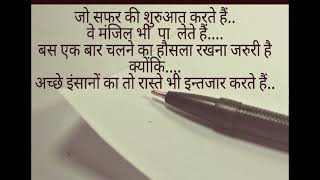 जो सफर की शुरुआत करते हैं..
वे मंजिल भी पा लेते हैं....
बस एक बार चलने का हौसला रखना जरुरी है
क्योंकि....
अच्छे इंसानों का तो रास्ते भी इन्तजार करते हैं..